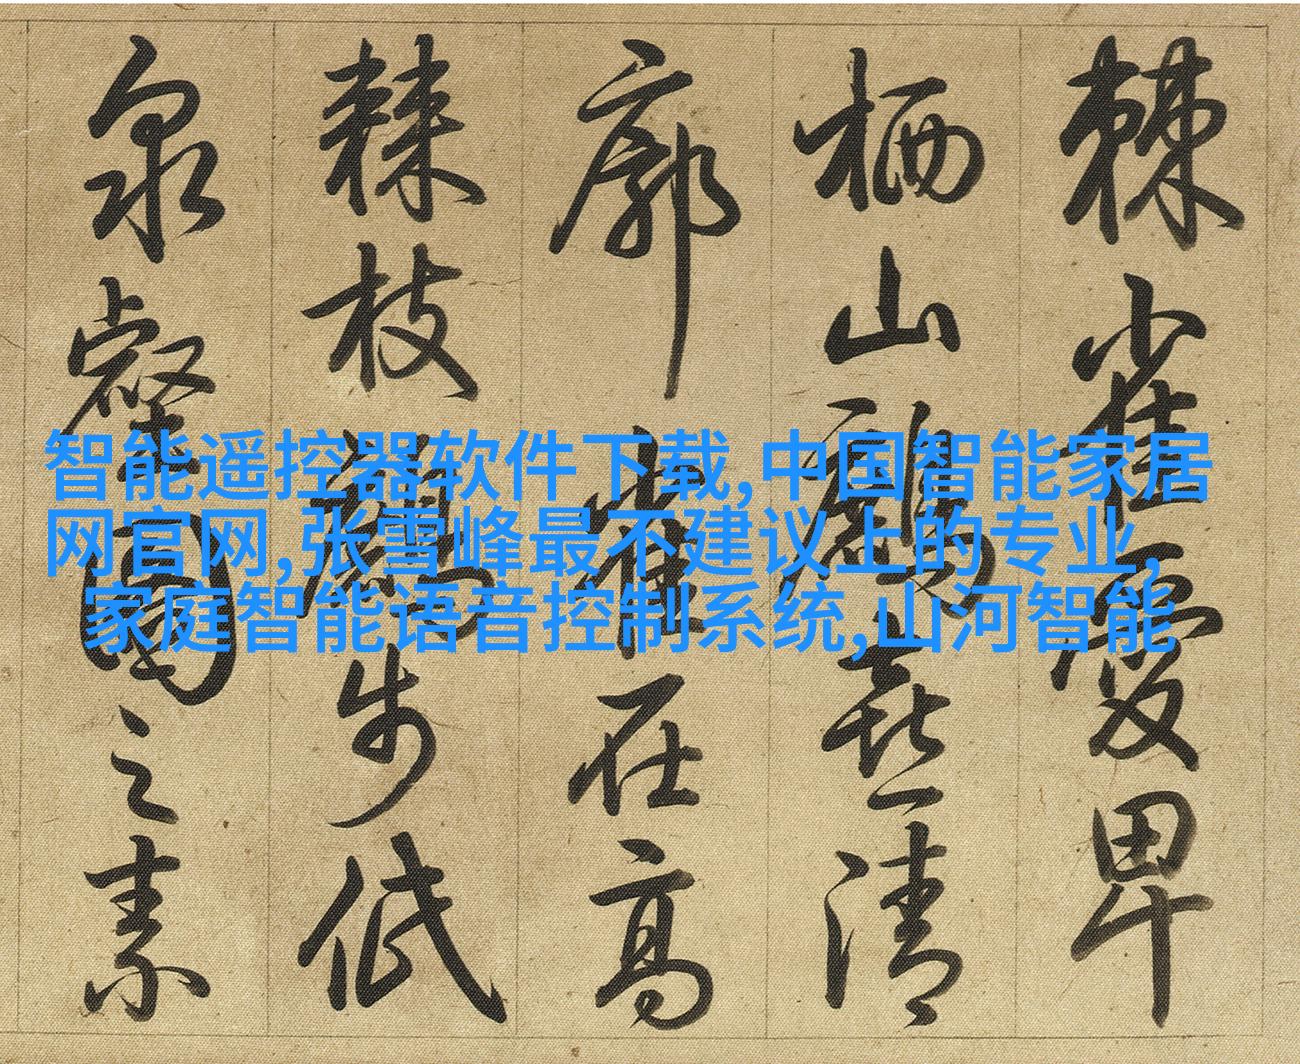 智能遥控器软件下载,中国智能家居
网官网,张雪峰最不建议上的专业,
家庭智能语音控制系统,山河智能
棘雀愛卑
栖山鷓喜清
廓雀在高
棘枝鷓步低
泉壑圖之素